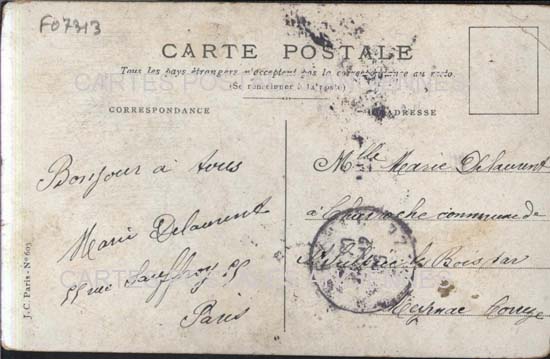 F07313
CARTE POSTALE
Tous les pays étrangers n'acceptent pas la correspondance au recto.
(Se renseigner à la poste)
CORRESPONDANCE
ADRESSE
Bonjour à tous
Marie Delaurent
55 rue Sauffroy 55
Paris
Mlle Marie Delaurent
à commune de
St le Bois par
J.-C. Paris - No 603
CARTES POSTALES